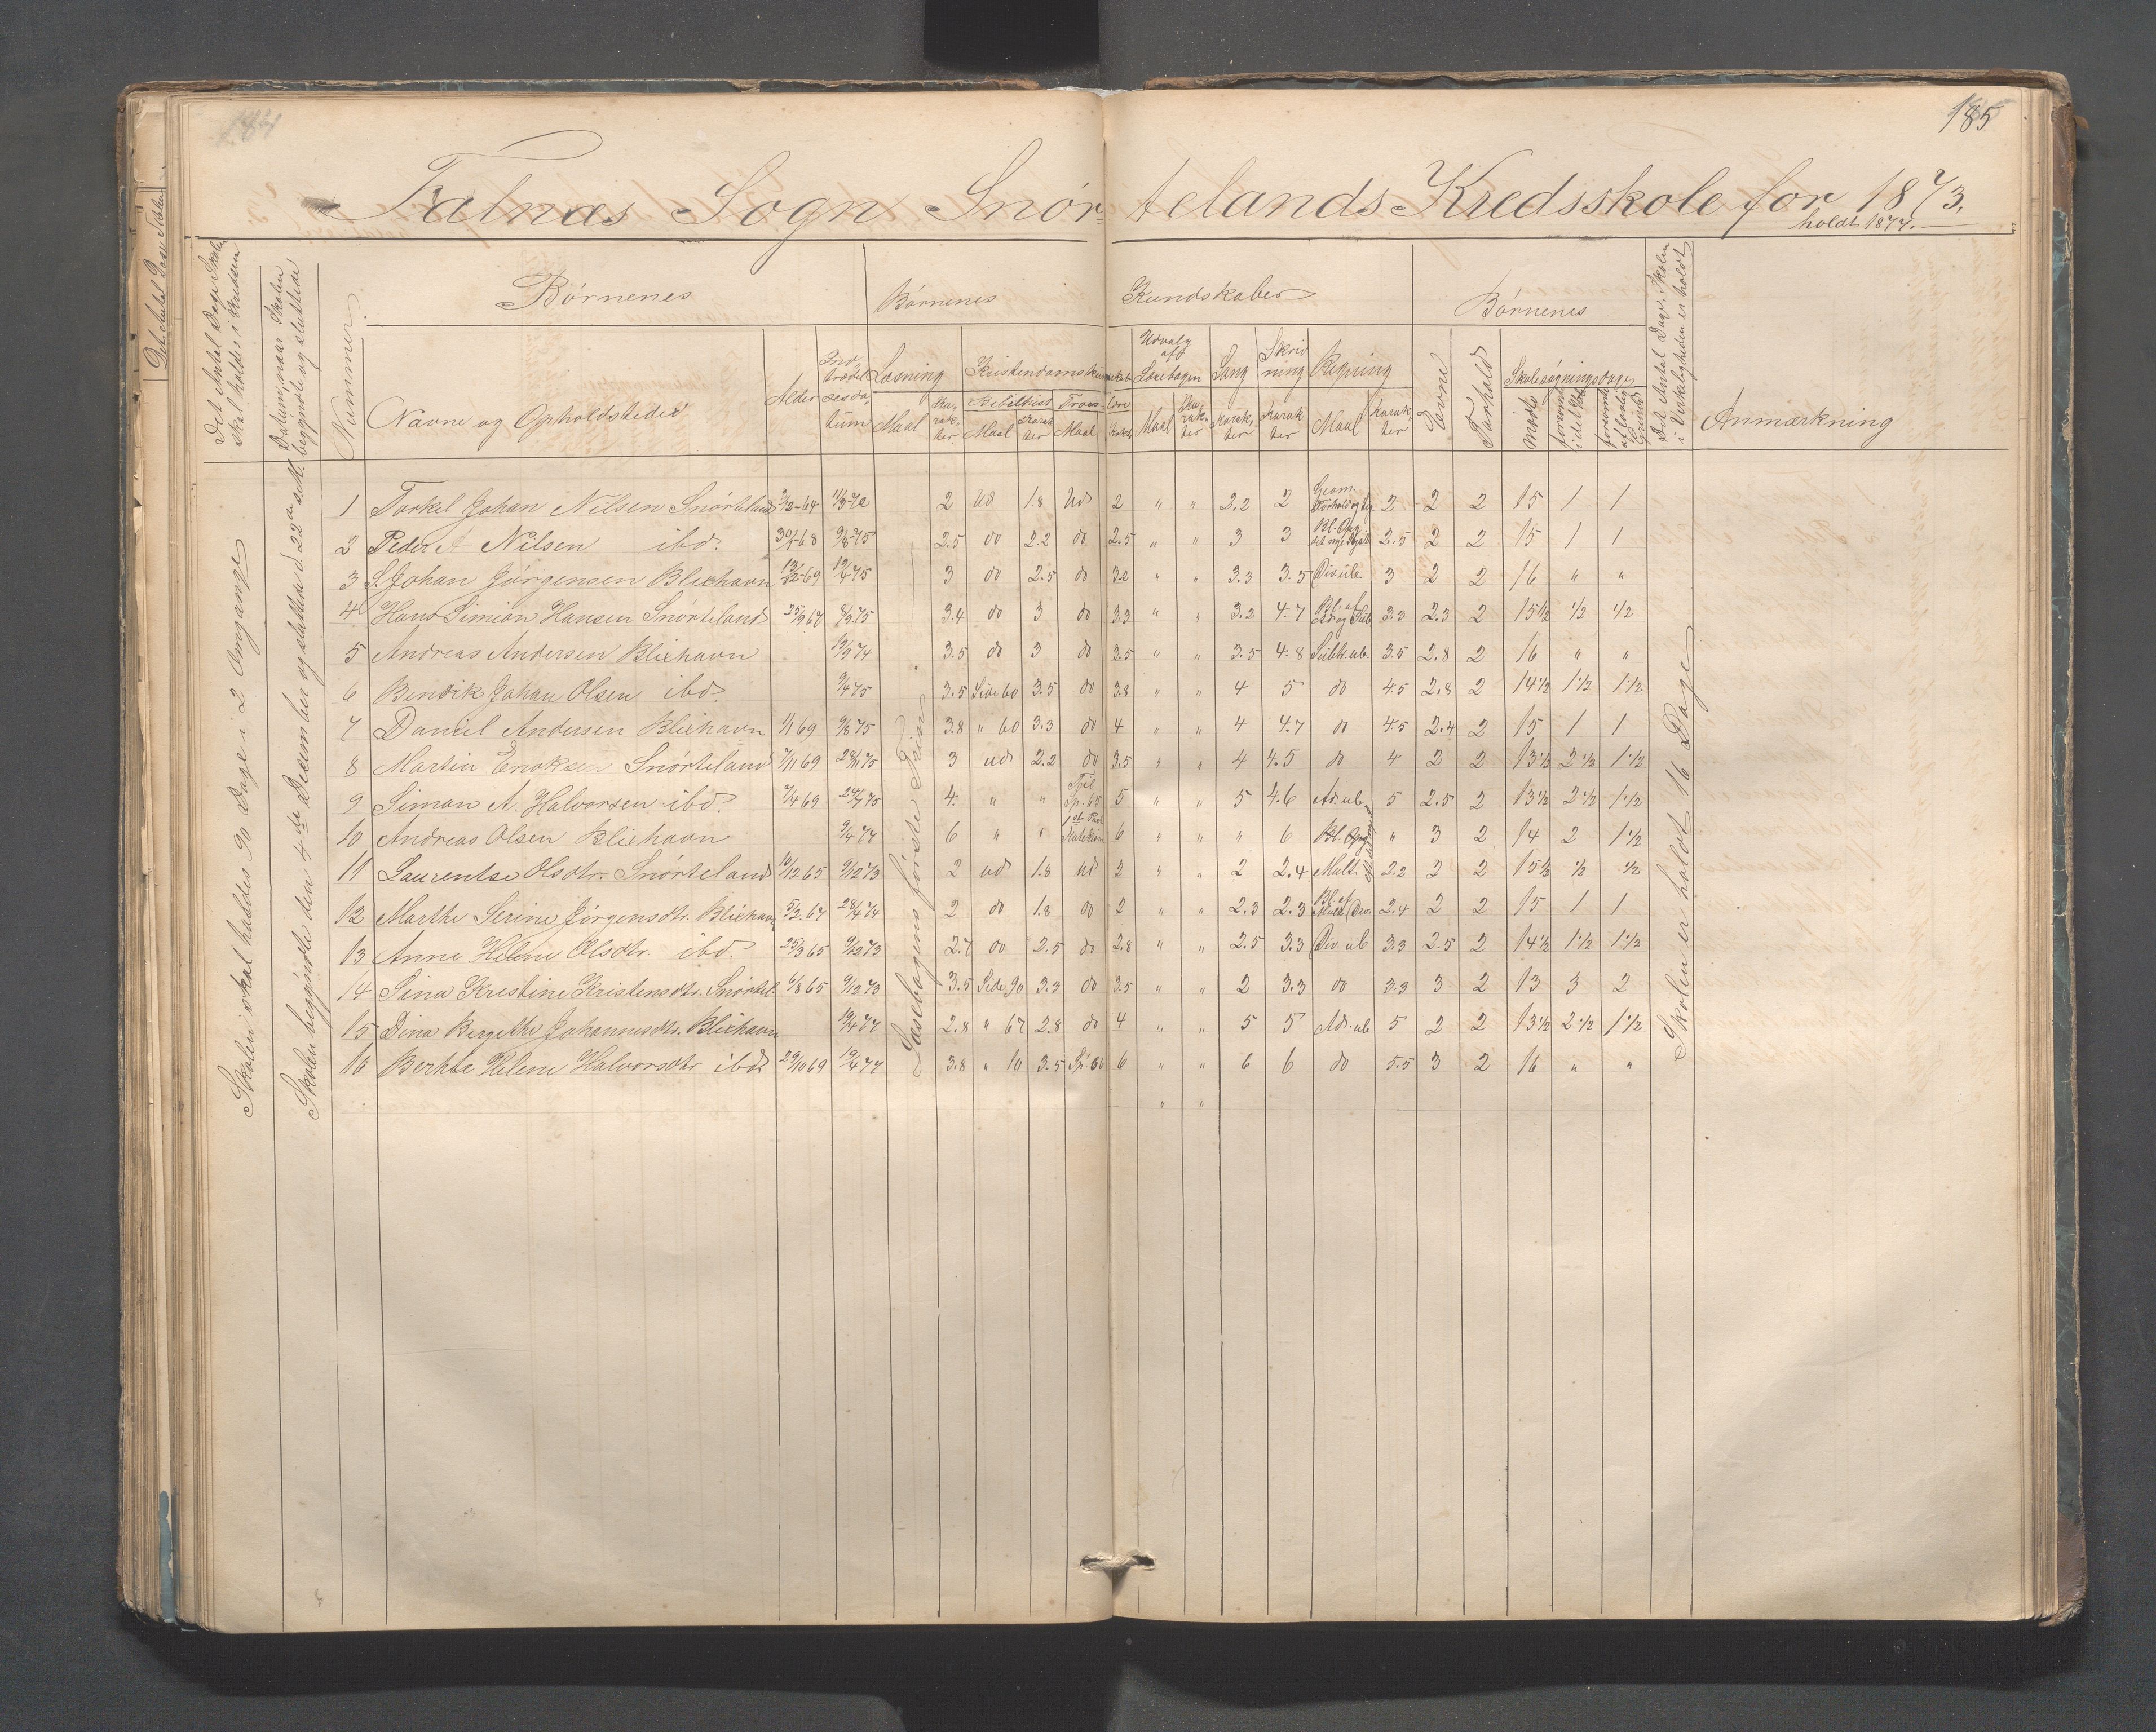 184
185
Falnæs Sogn Snørtelands Kredsskole for 1873.
holdt 1877.
Det Antal Dage Skolen skal holdes i Kredsen
Datum, naar Skolen begyndte og sluttede
Nummer
Børnenes
Børnenes
Kundskaber
Børnenes
Det Antal Dage, Skolen i Virkeligheden er holdt
Navne og Opholdssteder
Alder
Indtrædelsesdatum
Læsning
Kristendomskundskab
Udvalg aff Læsebogen
Sang
Skrivning
Regning
Evne
Forhold
Skolesøgningsdage
Anmærkning
Maal
Karakter
Bibelhist
Maal
Karakter
Troeslære
Maal
Maal
Karakter
Karakter
Karakter
Maal
Karakter
mødte
forsømte i det Hele
forsømte af lovlig Grund
Skolen skal holdes 90 Dage i 2 Omgange
Skolen begyndte den 4de December og sluttede d 22de s. M.
Læsebogens første Trin
Skolen er holdt 16 Dage
1 Torkel Johan Nilsen Snørteland 2/12-64 11/3-72 2 Ud 1.8 Ud 2 " " 2.2 2 Geom. Forhold og 2 2 2 15 1 1
2 Peder A Nilsen ibd. 30/1-68 9/8-75 2.5 do 2.2 do 2.5 " " 3 3 Bl. Opg. 2.5 2 2 15 1 1
3 S Johan Jørgensen Blixhavn 13/12-69 19/4 75 3 do 2.5 do 3.2 " " 3.3 3.5 Div. ub. 3 2 2 16 " "
4 Hans Simion Hansen Snørteland 25/9 67 8/9.75 3.4 do 3 do 3.3 " " 3.2 4.7 Bl. af Ad. og Sub 3.3 2.3 2 15 1/2 1/2 1/2
5 Andreas Andersen Blixhavn 19/9 74 3.5 do 3 do 3.5 " " 3.5 4.8 Subtr. ub. 3.5 2.8 2 16 " "
6 Bendik Johan Olsen ibd. 9/4 75 3.5 Side 60 3.5 do 3.8 " " 4 5 do 4.5 2.8 2 14 1/2 1 1/2 1 1/2
7 Daniel Andersen Blixhavn 1/1 69 9/8 75 3.8 " 60 3.3 do 4 " " 4 4.7 do 4.5 2.4 2 15 1 1
8 Martin Enoksen Snørteland 7/11 69 28/11 75 3 ud 2.2 do 3.5 " " 4 4.5 do 4 2 2 13 1/2 2 1/2 1 1/2
9 Simon A. Halvorsen ibd. 7/4 69 24/7 75 4. " " Sp. 65 5 " " 5 4.6 Ad. ub. 5 2.5 2 13 1/2 2 1/2 1 1/2
10 Andreas Olsen Blixhavn 9/4 77 6 " " 1st Part 6 " " " 6 Bl. Opg. " 3 2 14 2 1 1/2
11 Laurentse Olsdtr. Snørteland 10/12 65 9/12 73 2 ud 1.8 ud 2 " " 2 2.4 Mult. 2.2 2 2 15 1/2 1/2 1/2
12 Marthe Serine Jørgensdtr. Blixhavn 5/2.67 28/4 74 2 do 1.8 do 2 " " 2.3 2.3 Bl. af Mult. Div. 2.4 2 2 15 1 1
13 Anne Helene Olsdtr. ibd. 25/3 65 9/12 73 2.7 do 2.5 do 2.8 " " 2.5 3.3 Div. ub 3.3 2.5 2 14 1/2 1 1/2 1 1/2
14 Sina Kristine Kristensdtr. Snørtel. 6/8 65 9/12 73 3.5 Side 90 3.3 do 3.5 " " 2 3.3 do 3.3 3 2 13 3 2
15 Dina Bergithe Johannesdtr. Blixhavn 19/4 77 2.8 " 67 2.8 do 4 " " 5 5 Ad. ub 5 2 2 13 1/2 2 1/2 1 1/2
16 Berthe Helene Halvorsdtr ibd. 29/10 69 19/4 77 3.8 " 10 3.5 Sp. 66 6 " " 6 6 do 5.5 3 2 16 " "
" "